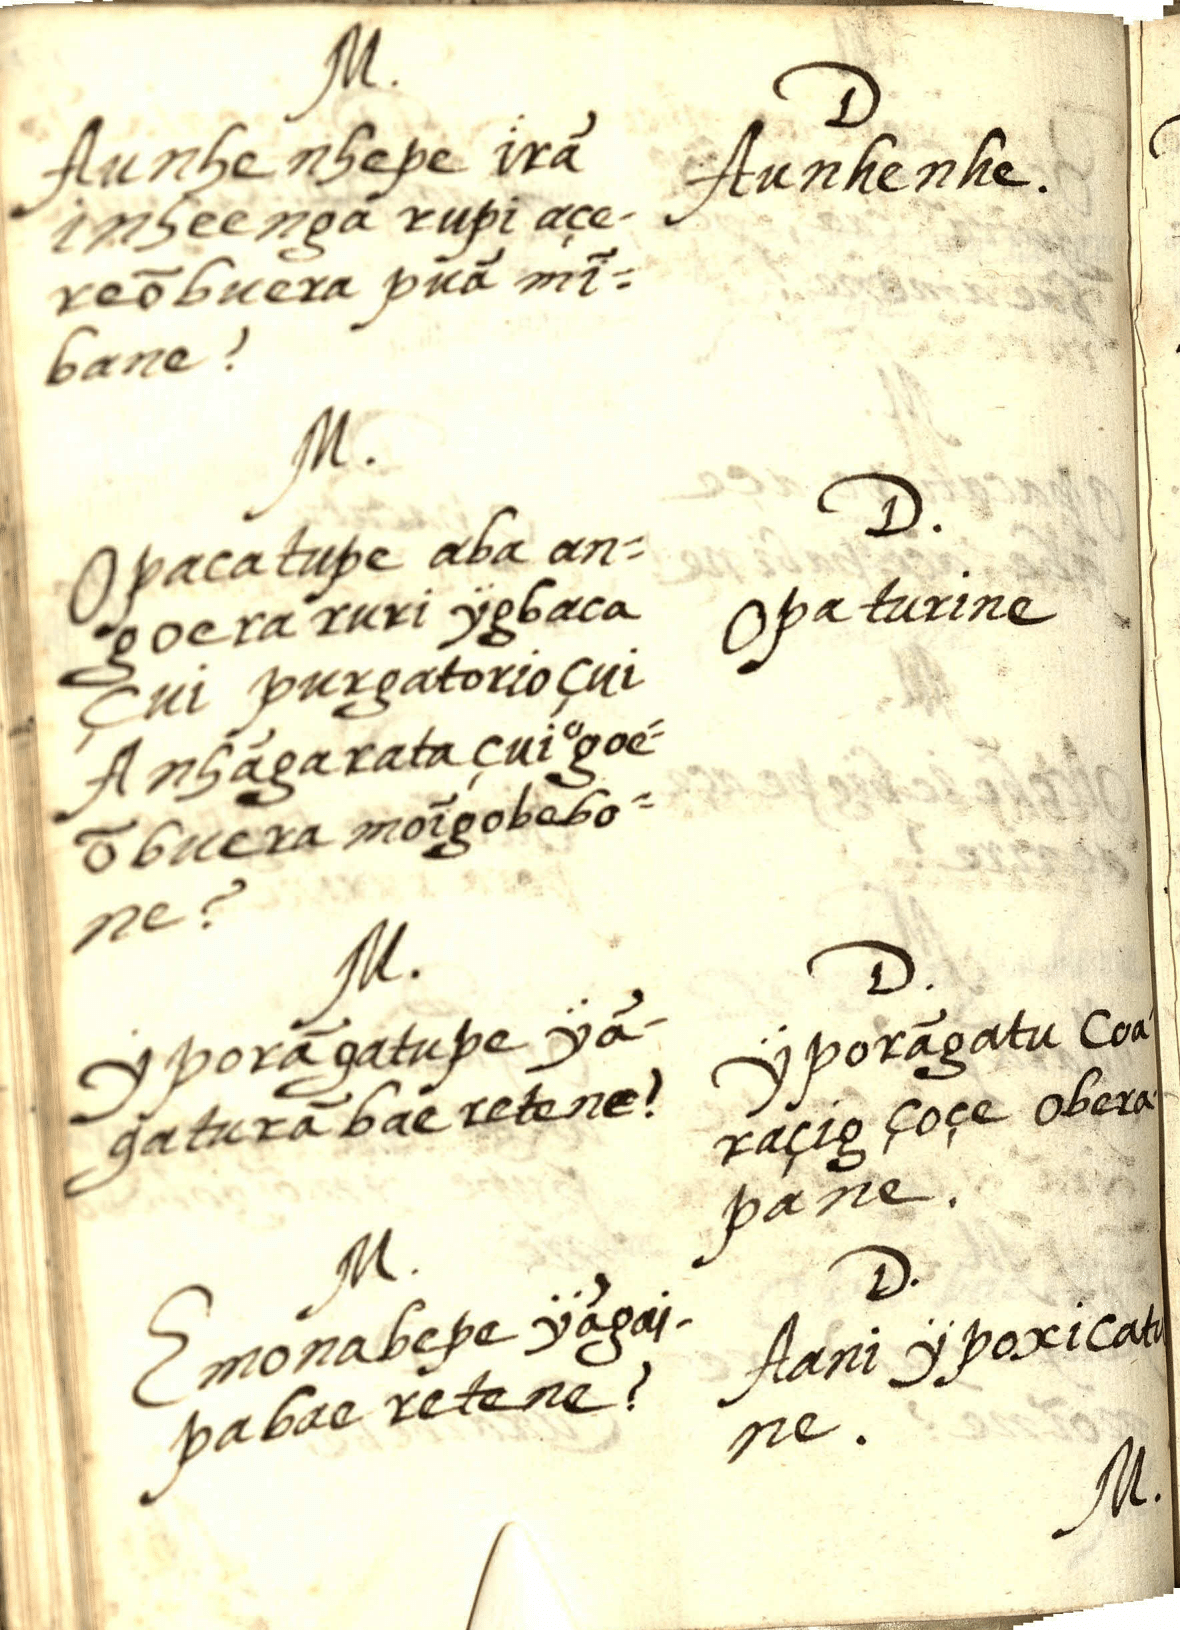 M.
Aunhe nhepe irã
inheenga rupi açe-
reõbuera pũã mĩ=
bane?
D
Aunhenhe.
M.
Opacatupe aba an=
goera ruri ÿgbaca
çui purgatorio çui
Anhãgarata çui ogoe=
õbuera moĩgobebo=
ne?
D.
Opa turine
M.
ÿporãgatupe ÿã-
gaturãbae retene?
D.
ÿporãgatu Coa
raçig çoçe obera
pane.
M.
Emonabepe ÿãgai-
pabae retene?
D.
Aani ÿpoxicatu
ne.
M.